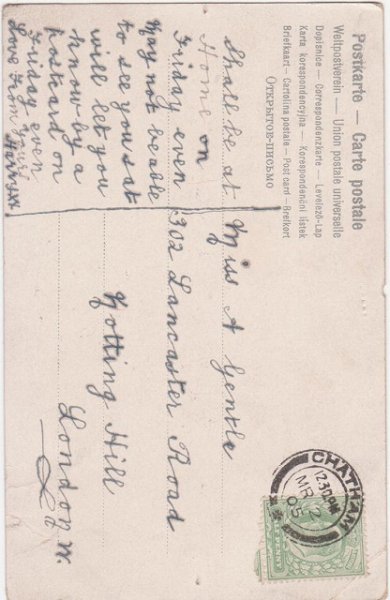 Postkarte — Carte postale
Weltpostverein — Union postale universelle
Dopisnice — Correspondenzkarte — Levelező-Lap
Karta korespondencyjna — Korespondenčni listek
Briefkaart — Cartolina postale — Post card — Brefkort
Открытое-письмо
Shall be at
Home on
Friday even
May not be able
to see you sat
will let you
know by a
postcard on
Friday even
Love From yours
Harry W.
Miss A Gentle
302 Lancaster Road
Notting Hill
London W.
CHATHAM
12.30PM
MR 2
05